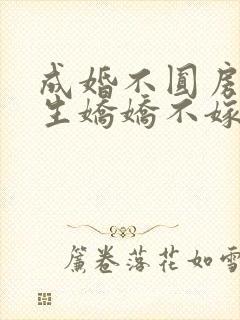 成婚不圆房
生嬌嬌不嫁
簾卷落花如雪